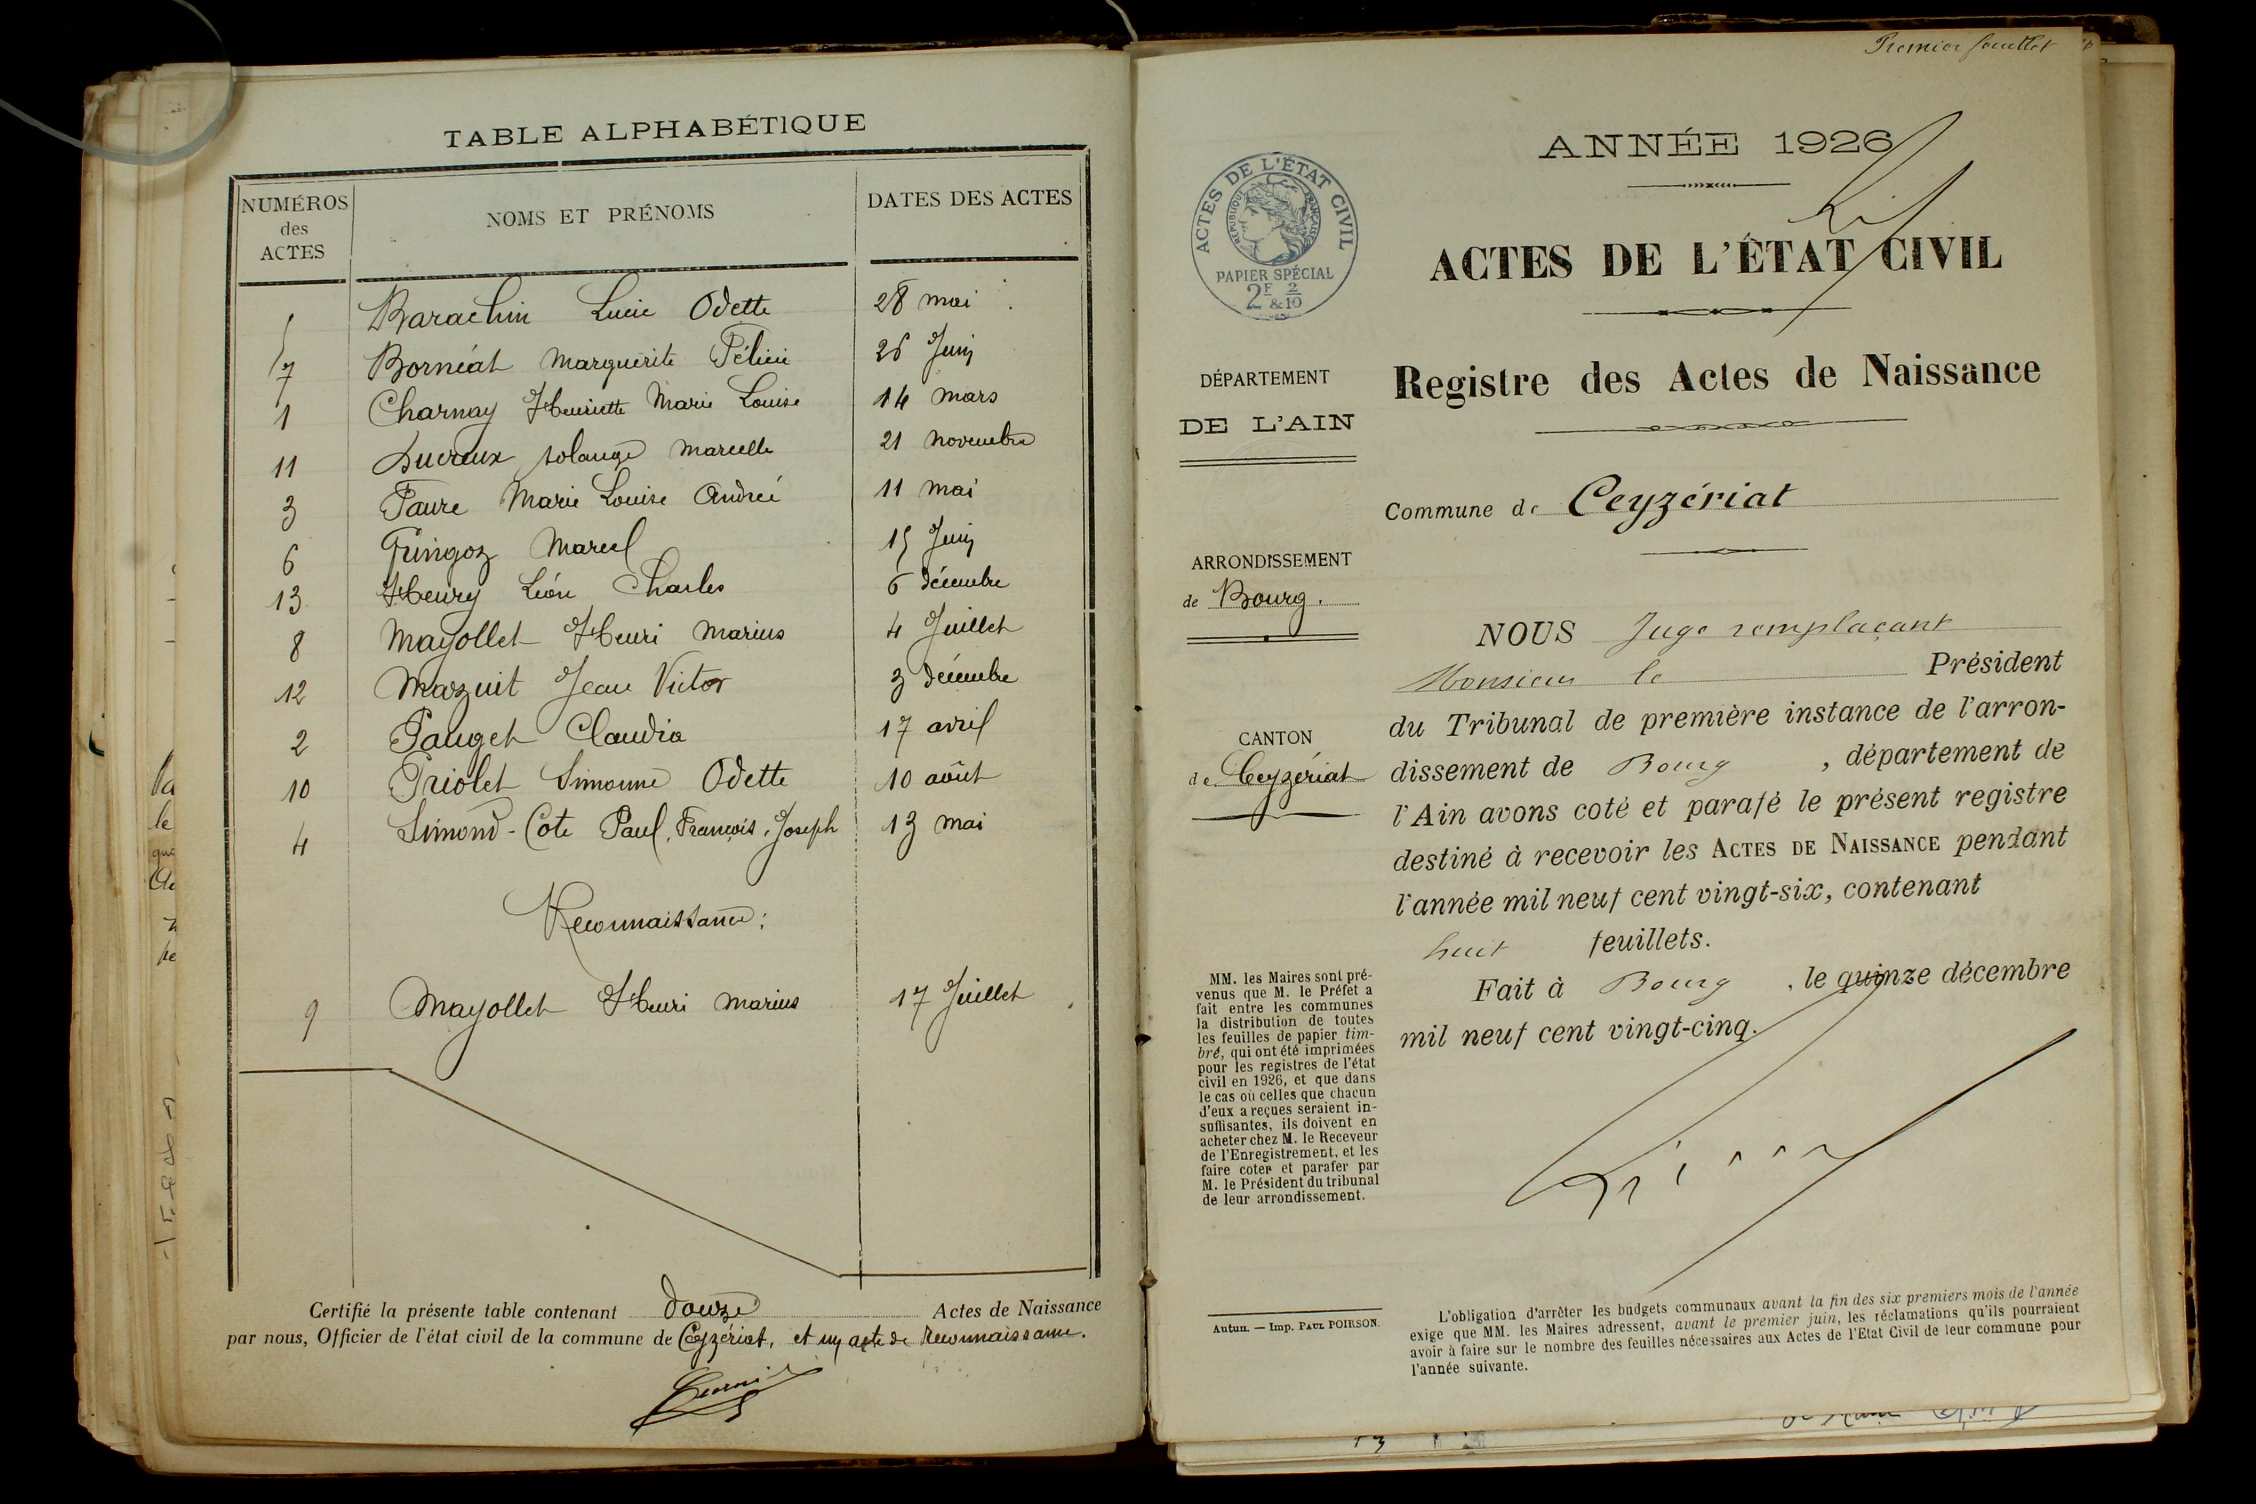 TABLE ALPHABÉTIQUE
NUMÉROS des ACTES
NOMS ET PRÉNOMS
DATES DES ACTES
5 Barachin Lucie Odette 28 mai
7 Bornéat Marguerite Félicie 26 Juin
1 Charnay Henriette Marie Louise 14 mars
11 Ducreux Solange Marcelle 21 novembre
3 Faure Marie Louise Andreé 11 mai
6 Gringoz Marcel 15 Juin
13 Henry Léon Charles 6 décembre
8 Mayollet Henri Marius 4 Juillet
12 Mazuit Jean Victor 3 décembre
2 Pauget Claudia 17 avril
10 Priolet Simonne Odette 10 août
4 Simond-Cote Paul, François, Joseph 13 mai
Reconnaissance:
9 Mayollet Henri Marius 17 Juillet
Certifié la présente table contenant douze Actes de Naissance
par nous, Officier de l'état civil de la commune de Ceyzériat, et un acte de Reconnaissance.
Premier feuillet
ANNÉE 1926
ACTES DE L'ÉTAT CIVIL
RÉPUBLIQUE FRANÇAISE
PAPIER SPÉCIAL
2F & 2/10
ACTES DE L'ÉTAT CIVIL
Registre des Actes de Naissance
DÉPARTEMENT
DE L'AIN
Commune de Ceyzériat
ARRONDISSEMENT
de Bourg.
CANTON
de Ceyzériat
NOUS Juge remplaçant
Monsieur le Président
du Tribunal de première instance de l'arron-
dissement de Bourg, département de
l'Ain avons coté et parafé le présent registre
destiné à recevoir les ACTES DE NAISSANCE pendant
l'année mil neuf cent vingt-six, contenant
huit feuillets.
Fait à Bourg, le quinze décembre
mil neuf cent vingt-cinq.
MM. les Maires sont pré-
venus que M. le Préfet a
fait entre les communes
la distribution de toutes
les feuilles de papier tim-
bré, qui ont été imprimées
pour les registres de l'état
civil en 1926, et que dans
le cas où celles que chacun
d'eux a reçues seraient in-
suffisantes, ils doivent en
acheter chez M. le Receveur
de l'Enregistrement, et les
faire coter et parafer par
M. le Président du tribunal
de leur arrondissement.
Autun. — Imp. PAUL POIRSON.
L'obligation d'arrêter les budgets communaux avant la fin des six premiers mois de l'année
exige que MM. les Maires adressent, avant le premier juin, les réclamations qu'ils pourraient
avoir à faire sur le nombre des feuilles nécessaires aux Actes de l'Etat Civil de leur commune pour
l'année suivante.